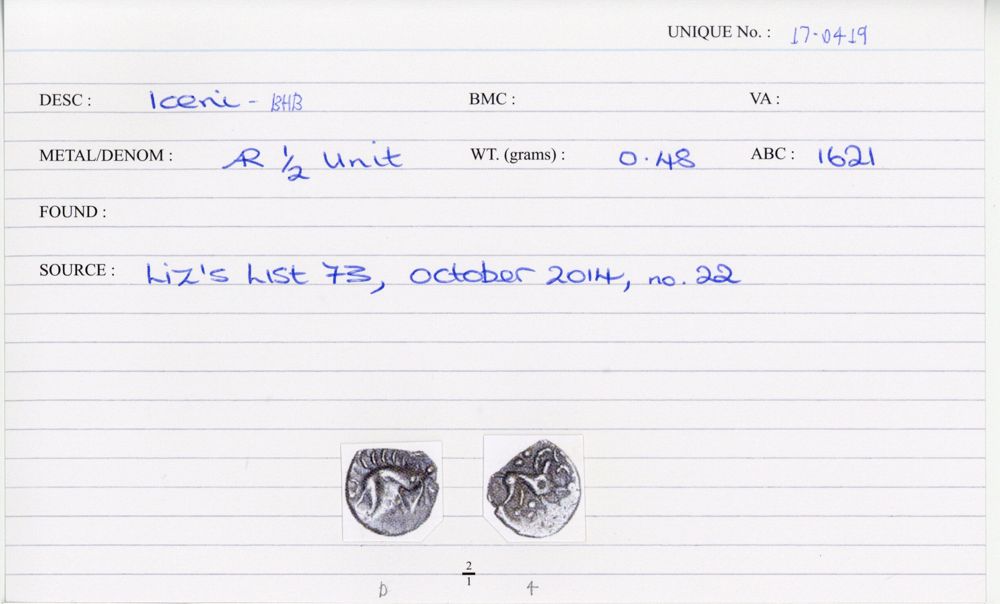 UNIQUE No. : 17-0419
DESC : Iceni - BHB BMC : VA :
METAL/DENOM : AR 1/2 Unit WT. (grams) : 0.48 ABC : 1621
FOUND :
SOURCE : Liz's List 73, October 2014, no. 22
2/1
D 4